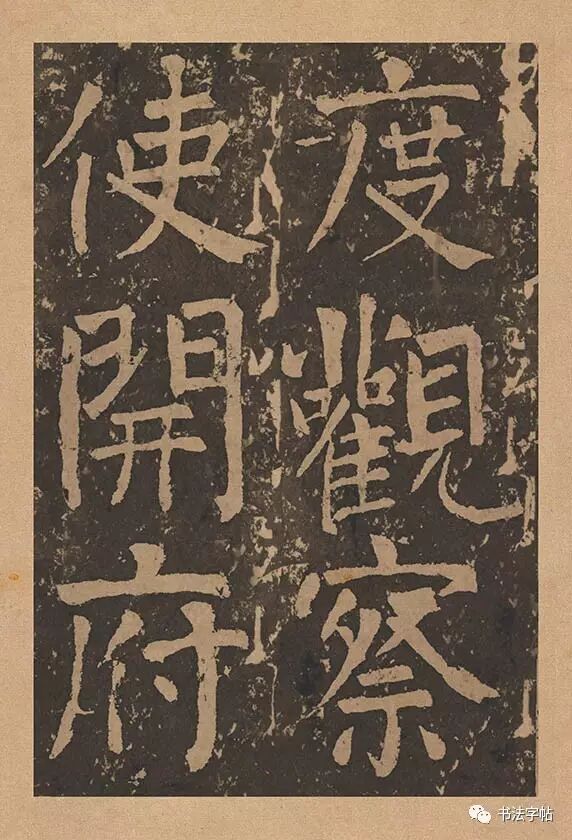 度觀察
使開府
书法字帖